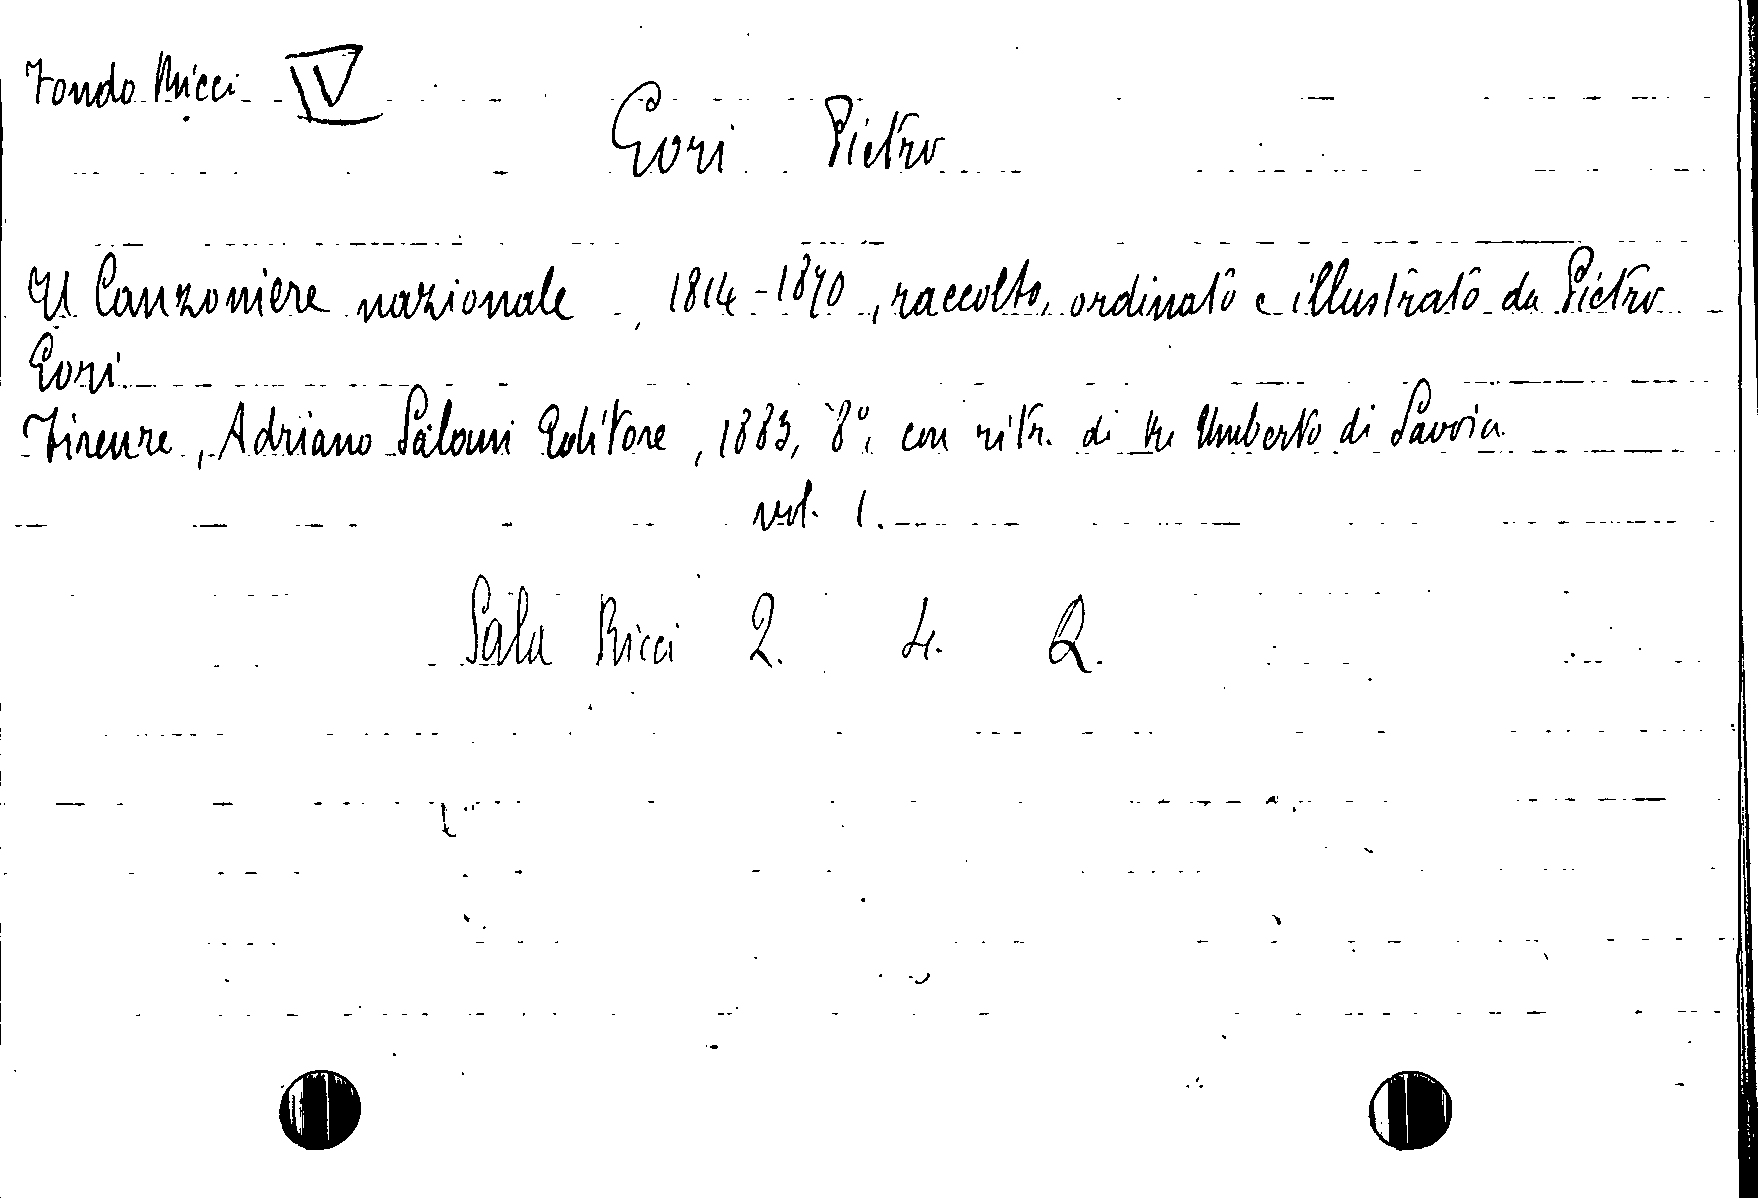 Fondo Ricci IV
Gori Pietro
Il Canzoniere nazionale, 1814-1870, raccolto, ordinato e illustrato da Pietro
Gori
Firenze, Adriano Salani Editore, 1883, 8°, con ritr. di Re Umberto di Savoia
vol. 1.
Sala Ricci 2. 4. 2.